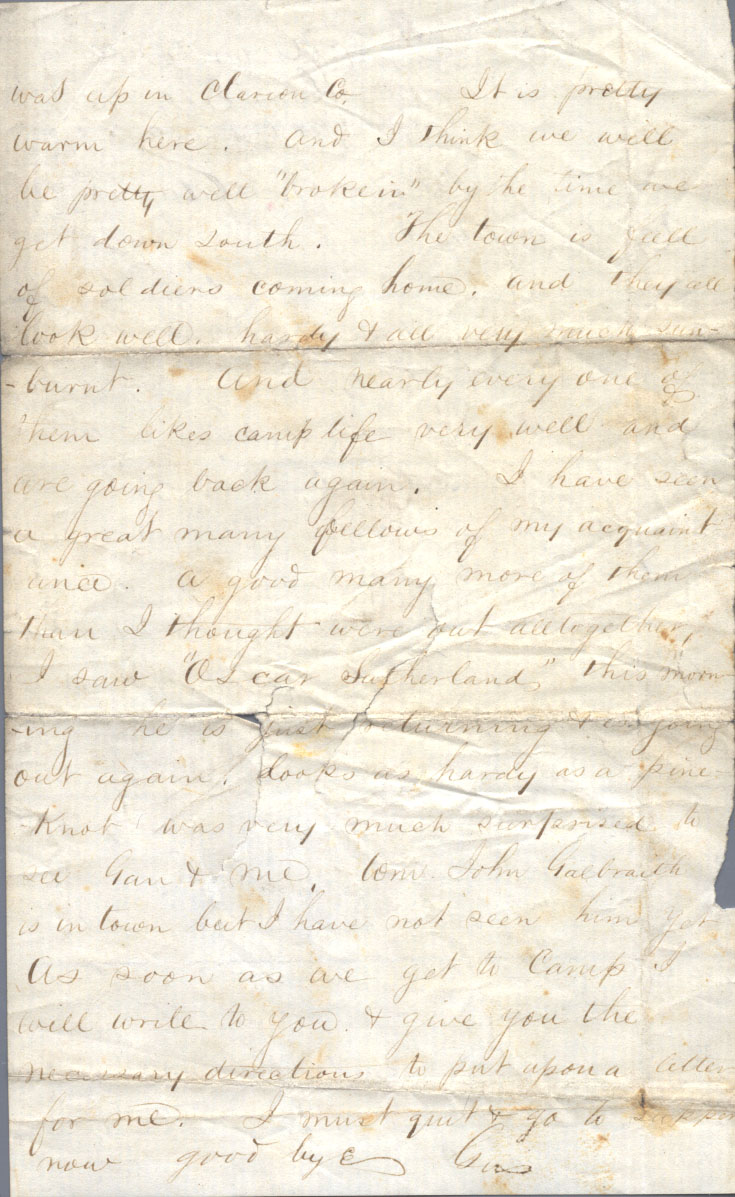 was up in Clarion Co. It is pretty
warm here. And I think we will
be pretty well "broke in" by the time we
get down South. The town is full
of soldiers coming home. and they all
look well. hardy & all very much sun-
-burnt. And nearly every one of
them likes camp life very well and
are going back again. I have seen
a great many fellows of my acquaint
ance. A good many more of them
than I thought were out alltogether,
I saw "Oscar Sutherland" this morn
-ing he is just returning & is going
out again. Looks as hardy as a pine-
-Knot was very much surprised to
see Gan & me. John Galbraith
is in town but I have not seen him yet
As soon as we get to Camp I
will write to you. & give you the
necessary directions to put upon a letter
for me. I must quit & go to supper
now good bye Gus